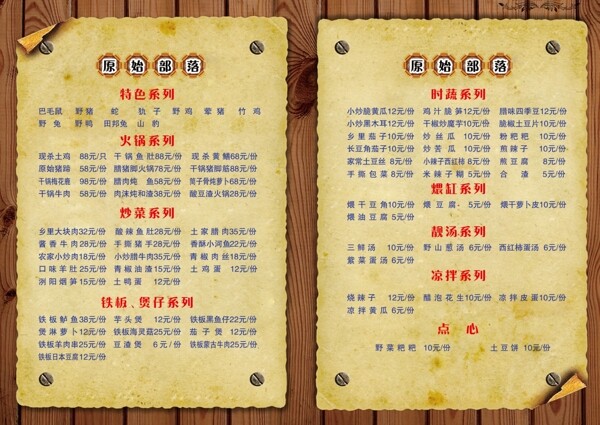 原始部落
特色系列
巴毛鼠 野猪 蛇 犰子 野鸡 荤猪 竹鸡
野兔 野鸭 田邦兔 山的
火锅系列
现杀土鸡 88元/只 干锅鱼肚88元/份 现杀黄鳝68元/份
原始猪蹄 58元/份 腊猪脚火锅78元/份 干锅猪脚筋88元/份
干锅梅花鹿 98元/份 腊肉炖鱼58元/份 筒子骨炖萝卜68元/份
干锅牛肉 58元/份 肉沫炖和渣38元/份 酸豆渣火锅28元/份
炒菜系列
乡里大块肉32元/份 酸辣鱼肚28元/份 土家腊肉35元/份
酱香牛肉28元/份 手撕猪手28元/份 香酥小河鱼22元/份
农家小炒肉18元/份 小炒腊牛肉35元/份 青椒肉丝18元/份
口味羊肚25元/份 青椒油渣15元/份 土鸡蛋 12元/份
浏阳烟笋15元/份 土鸭蛋 12元/份
铁板、煲仔系列
铁板鲈鱼38元/份 芋头煲 12元/份 铁板黑鱼仔22元/份
煲淋萝卜12元/份 铁板海灵菇25元/份 茄子煲 12元/份
铁板羊肉串25元/份 豆渣煲 6元/份 铁板蒙古牛肉25元/份
铁板日本豆腐12元/份
原始部落
时蔬系列
小炒脆黄瓜12元/份 鸡汁脆笋12元/份 腊味四季豆12元/份
小炒黑木耳12元/份 干椒炒魔芋10元/份 脆椒土豆片10元/份
乡里茄子10元/份 炒丝瓜 10元/份 粉粑粑 10元/份
长豆角茄子10元/份 炒苦瓜 10元/份 煎辣子 10元/份
家常土豆丝 8元/份 小辣子西红柿 8元/份 煎豆腐 8元/份
手撕包菜 8元/份 米辣子糊 5元/份 合渣 5元/份
煨缸系列
煨干豆角10元/份 煨豆腐 5元/份 煨干萝卜皮10元/份
煨油豆腐 5元/份
靓汤系列
三鲜汤 10元/份 野山葱汤 6元/份 西红柿蛋汤 6元/份
紫菜蛋汤 6元/份
凉拌系列
烧辣子 12元/份 醋泡花生10元/份 凉拌皮蛋10元/份
凉拌黄瓜 6元/份
点心
野菜粑粑 10元/份 土豆饼 10元/份